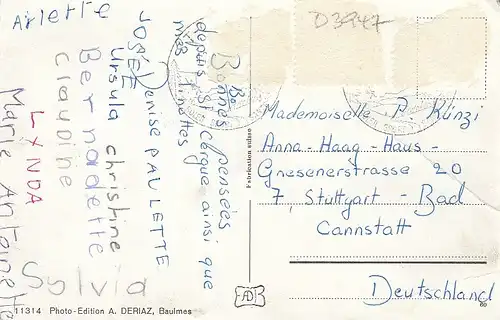 Arlette
D3947
Bonnes pensées
depuis St. Cergue ainsi que
mes
JOSÉE Denise PAULETTE
Ursula christine
Bernadette
claudine
LYNDA
Marie Antoinette
Sylvia
Mademoiselle P. Künzi
Anna-Haag-Haus-
Gnesenerstrasse 20
7, Stuttgart-Bad
Cannstatt
Deutschland
Fabrication suisse
AD
11314 Photo-Edition A. DERIAZ, Baulmes
60